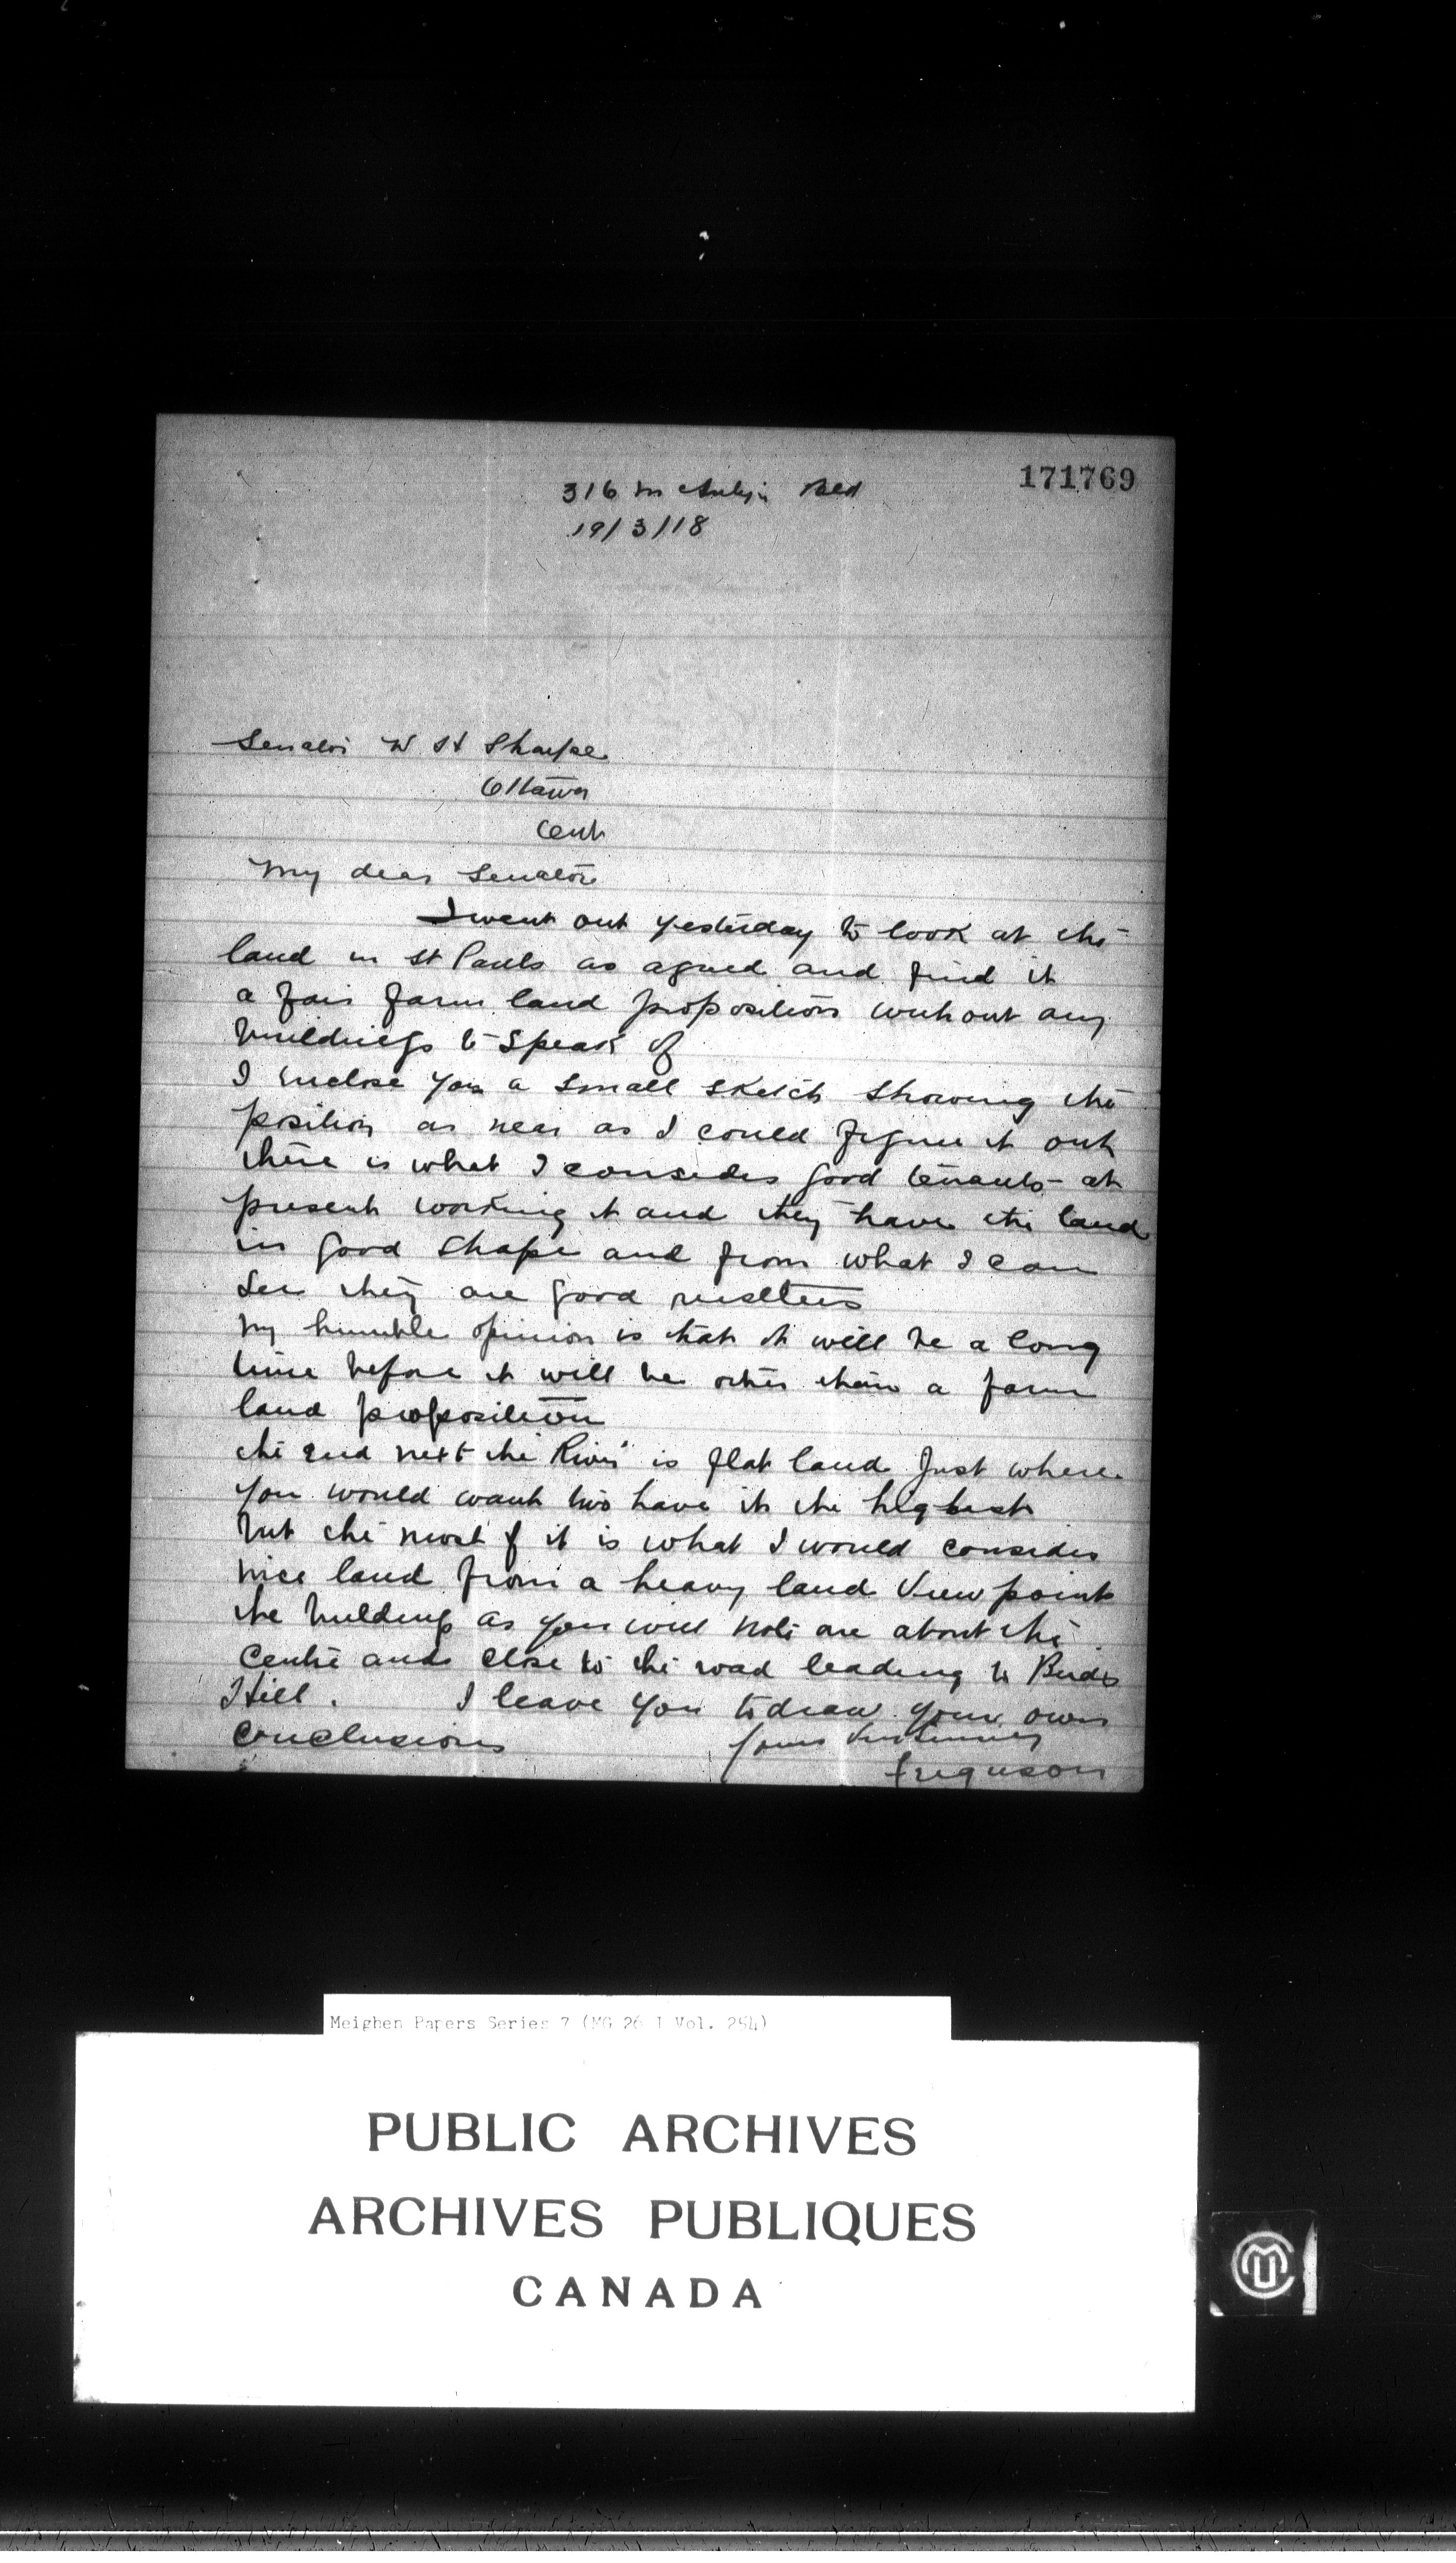 171769
316 McArthur Bld
19/3/18
Senator W H Sharpe
Ottawa
Ont
My dear Senator
I went out yesterday to look at the
land in St Pauls as agreed and find it
a fair farm land proposition without any
buildings to speak of
I inclose you a small sketch showing the
position as near as I could figure it out
there is what I consider good tenants at
present working it and they have the land
in good shape and from what I can
see they are good
My humble opinion is that it will be a long
time before it will be other than a farm
land proposition
the end next the River is flat land Just where
you would want to have it the highest
but the most of it is what I would consider
nice land from a heavy land view point
the buildings as you will note are about the
Centre and close to the road leading to Birds
Hill. I leave you to draw your own
conclusions
Yours
Ferguson
Meighen Papers Series 7 (MG 26 I Vol. 254)
PUBLIC ARCHIVES
ARCHIVES PUBLIQUES
CANADA